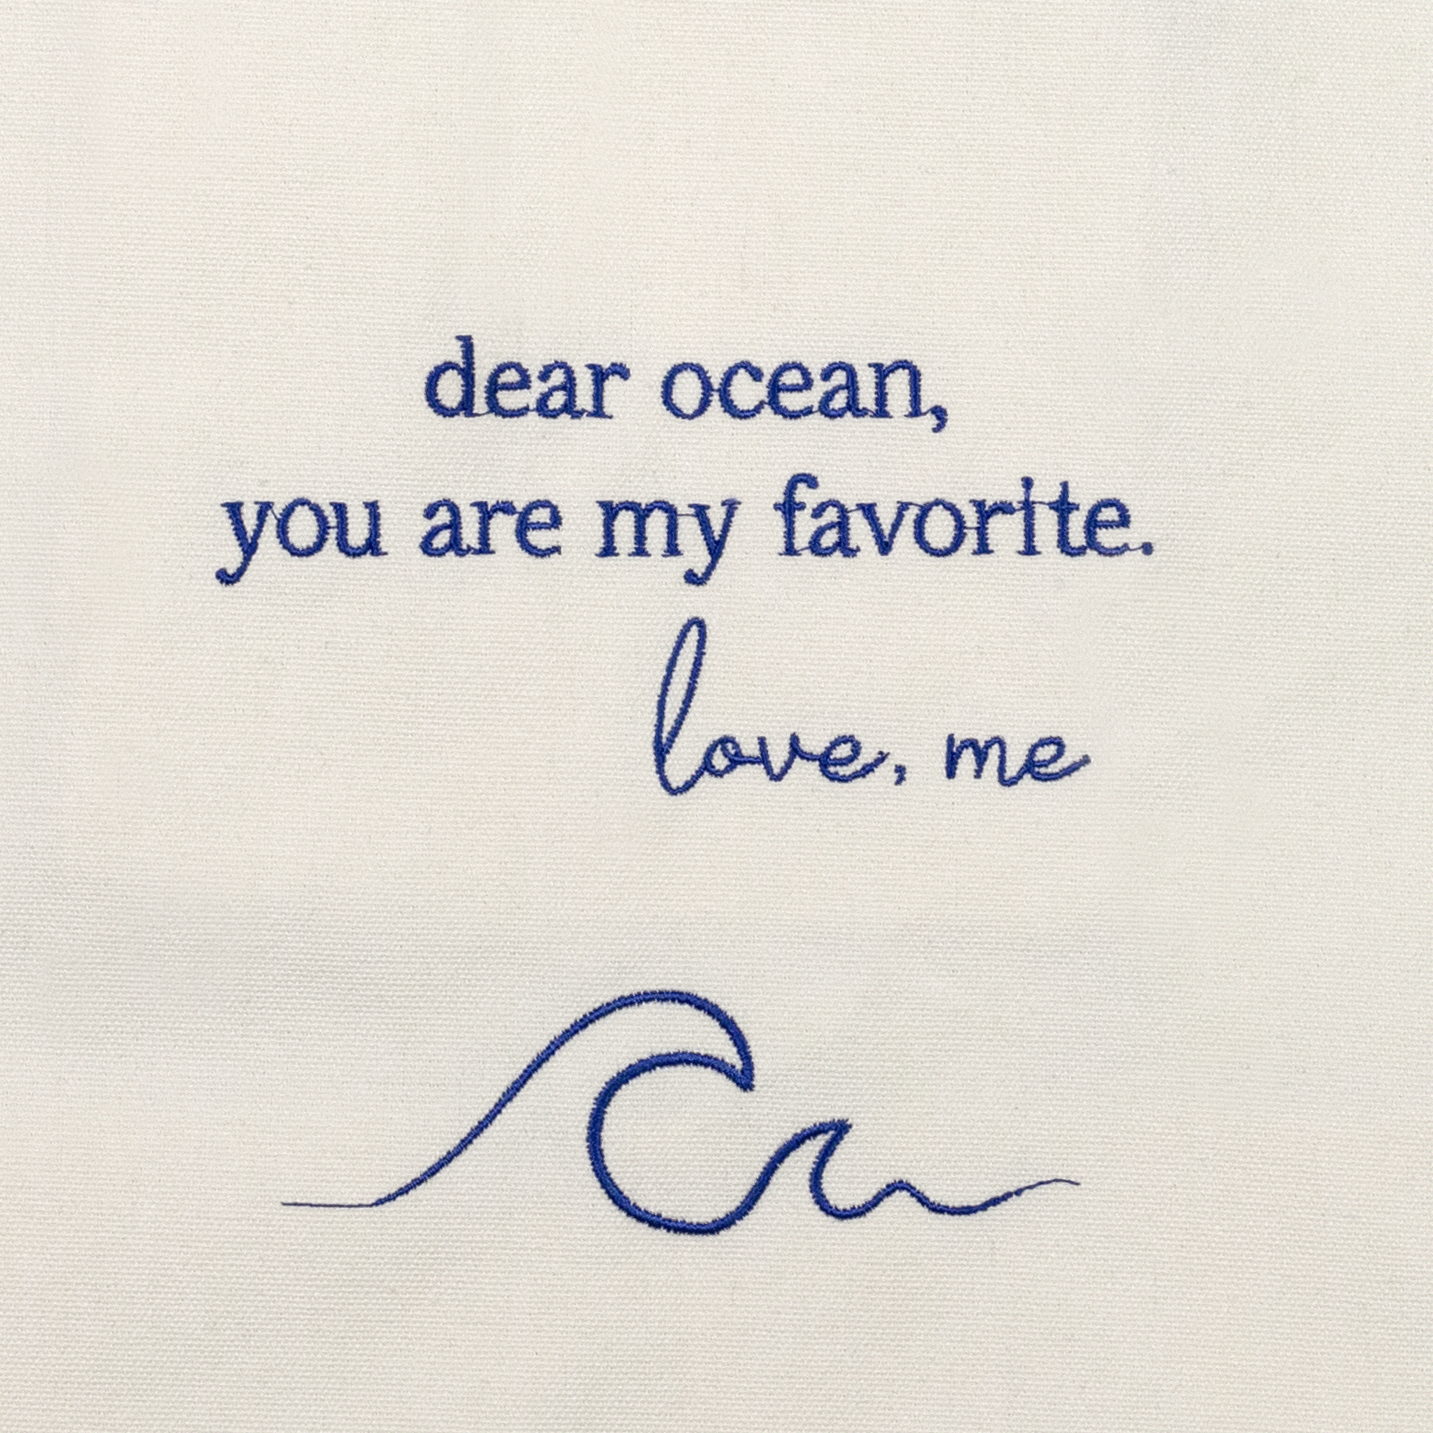 dear ocean,
you are my favorite.
love, me